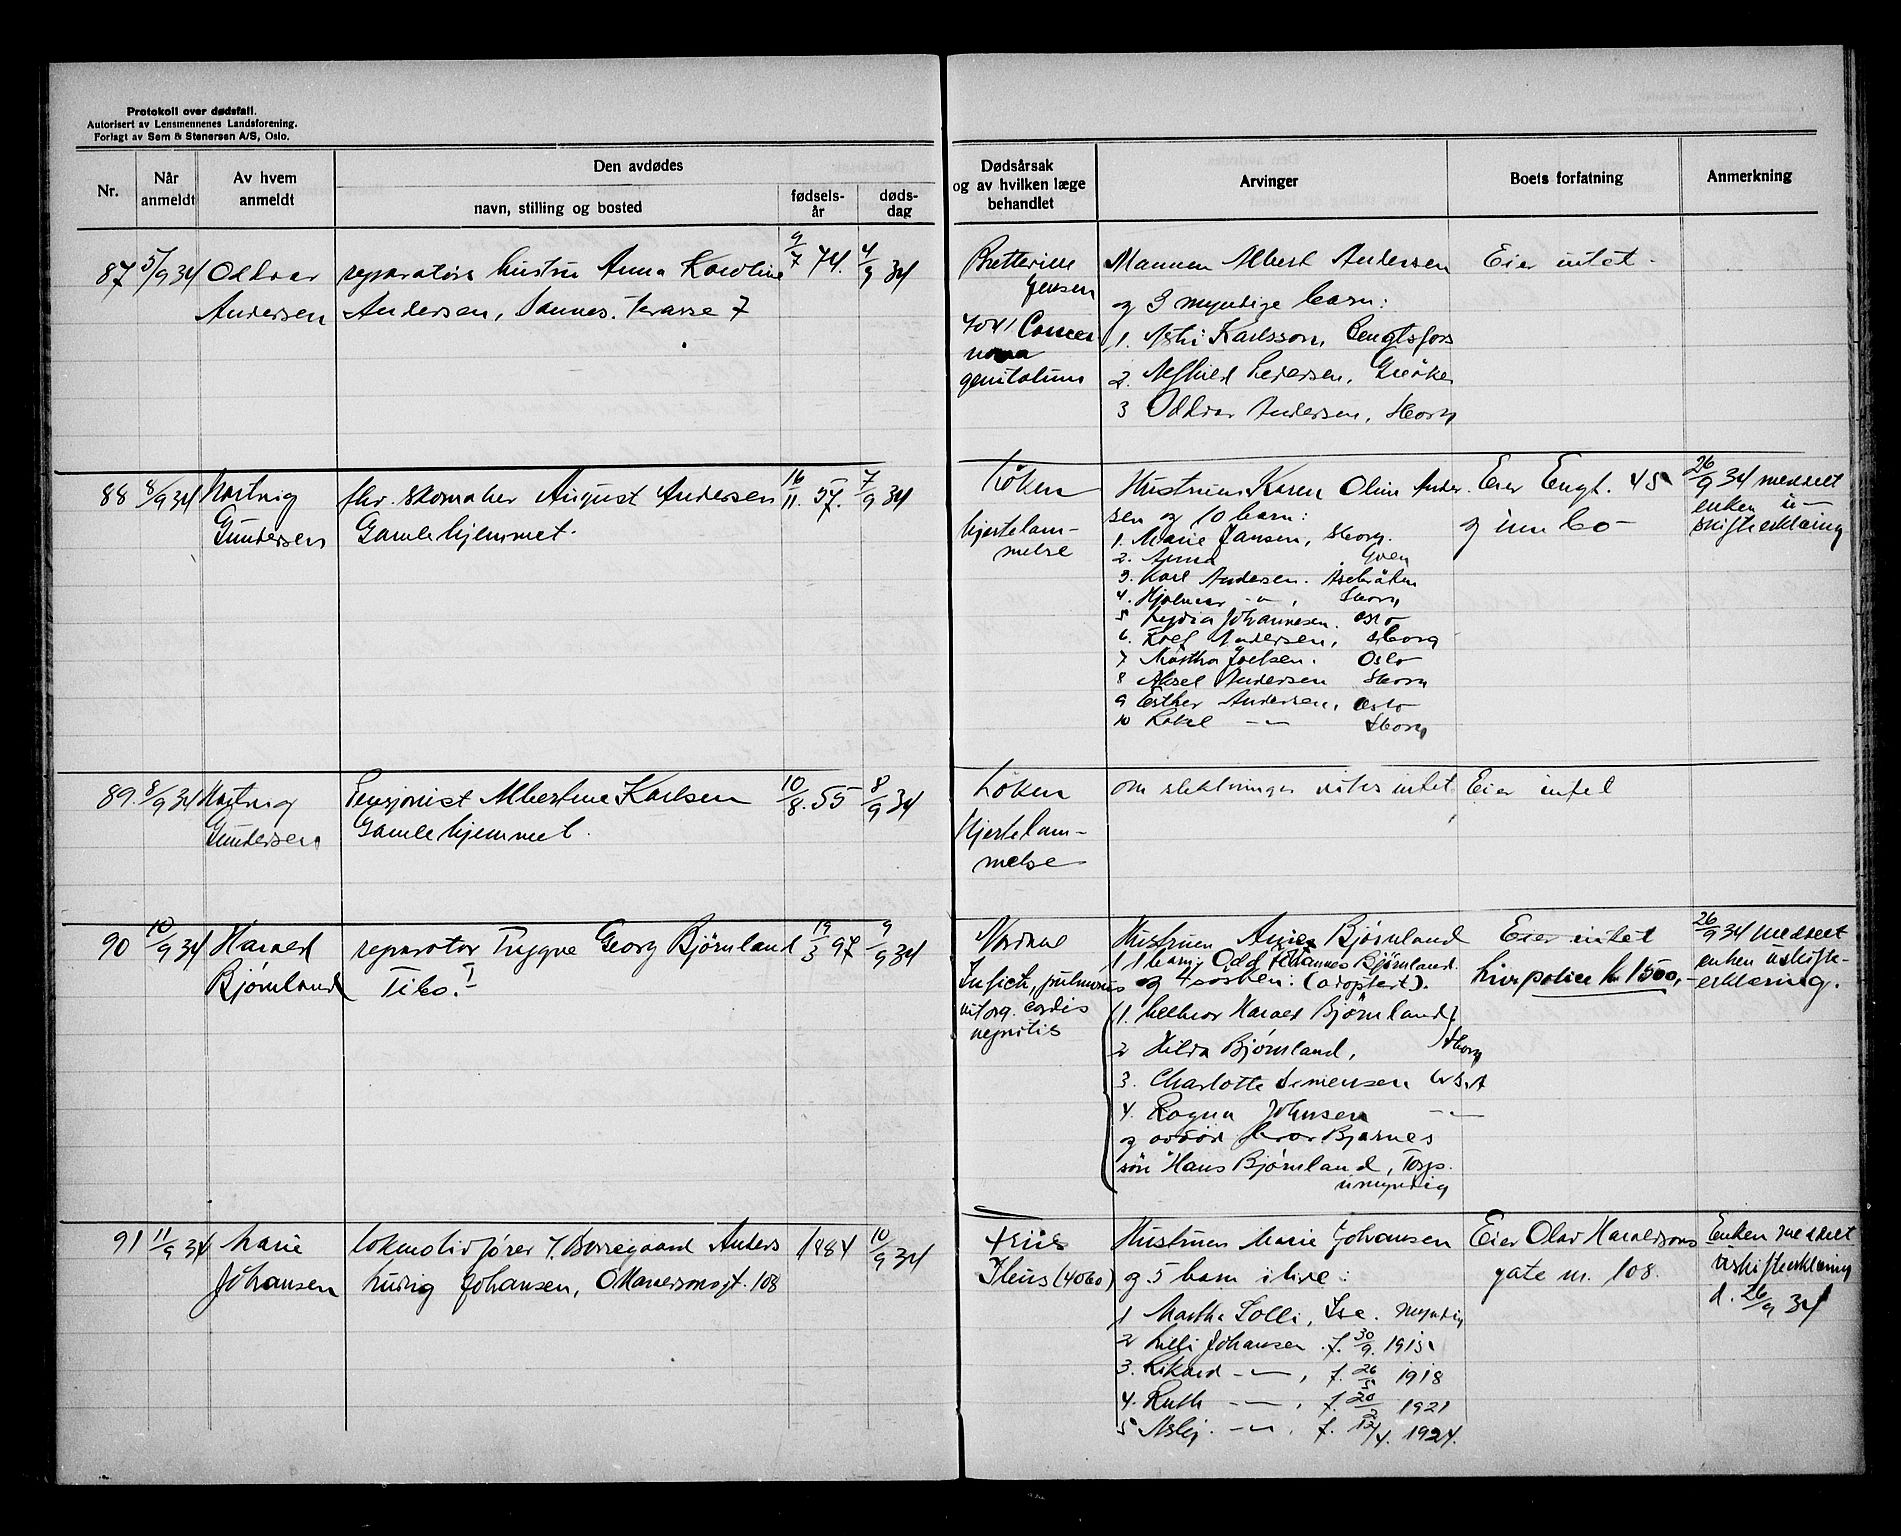 Protokoll over dødsfall.
Autorisert av Lensmennenes Landsforening.
Forlagt av Sem & Stenersen A/S, Oslo.
Nr.
Når anmeldt
Av hvem anmeldt
Den avdødes
navn, stilling og bosted
fødsels-år
døds-dag
Dødsårsak
og av hvilken læge
behandlet
Arvinger
Boets forfatning
Anmerkning
87 5/9 34 Oddvar reparatørs hustru Anna Karoline 9/7 74. 4/9 34
Andersen Andersen, Sannes. Terasse 7
Bretteville
Jensen
genitalium
Mannen Albert Andersen
og 3 myndige barn:
1. Karlsson, Bengtsfors
2. Pedersen, Greåker
3 Oddvar Andersen, Sborg
Eier intet -
88 8/9 34 Hartvig fhv. skomaker August Andersen 16/11. 57. 7/9 34
Gundersen Gamlehjemmet.
Løken
hjertelam-
melse
Hustruen Karen Oline Ander
sen og 10 barn:
1. Marie Jansen, Sborg.
2. Anna
3. Karl Andersen.
4. Hjalmar -"-, Sborg
5 Lydia Johannesen. Oslo
6. Rolf Andersen, Sborg
7 Martha Joelsen. Oslo
8 Aksel Andersen Sborg
9 Esther Andersen, Oslo
10 Rakel -"- Sborg
Eier Engt. 45
og innbo -
26/9 34 meddelt
enken u-
skifteerklæring
89. 8/9 34 Hartvig Pensjonist Albertine Karlsen 10/8. 55 8/9 34
Gundersen Gamlehjemmet.
Løken
Hjertelam-
melse
om slektninger vites intet
Eier intet
90 10/9 34 Harald reparatør Trygve Georg Bjørnland 19/3 97 9/9 34
Bjørnland Tibo. I
Nordal
Insfict, pulmonis
vit org. cordis
nefritis
Hustruen Bjørnland
1 barn: Odd Johannes Bjørnland.
og 4 søsken. (adoptert).
1. Harald Bjørnland
2 Hilda Bjørnland, Sborg
3. Charlotte Simensen
4. Ragna Johnsen -"-
og avdød bror Bjarnes
søn Hans Bjørnland, Torp.
umyndig
Eier intet
Livspolice kr 1500,-
26/9 34 meddelt
enken uskifte-
erklæring.
91 11/9 34 Marie lokomotivfører v. Borregaard Anders 1884 10/9 34
Johansen Ludvig Johansen, O Haraldsonsgt. 108
Friis
Ileus (4060)
Hustruen Marie Johansen
og 5 barn i live:
1 Martha Solli, Ise. myndig
2 Lilli Johansen. f. 30/9. 1915
3. Rikard -"-, f. 26/5 1918
4. Ruth -"-, f. 20/2 1921
5 Aslaug. -"-, f. 12/4. 1924.
Eier Olav Haraldsons
gate nr. 108.
Enken meddelt
uskifteerklæring
d. 26/9 34